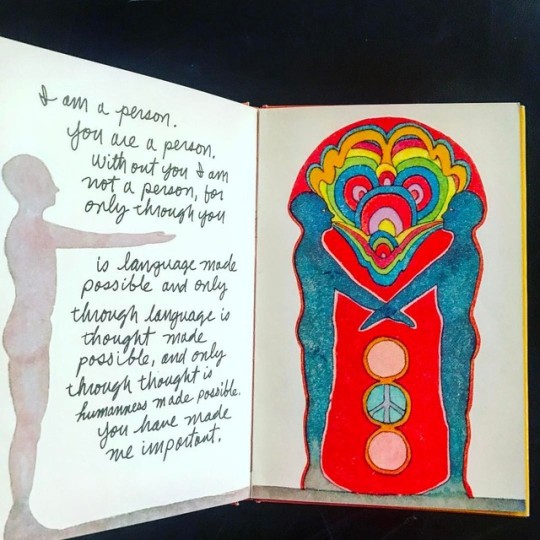 I am a person.
You are a person.
Without you I am
not a person, for
only through you
is language made
possible and only
through language is
thought made
possible, and only
through thought is
humanness made possible.
You have made
me important.